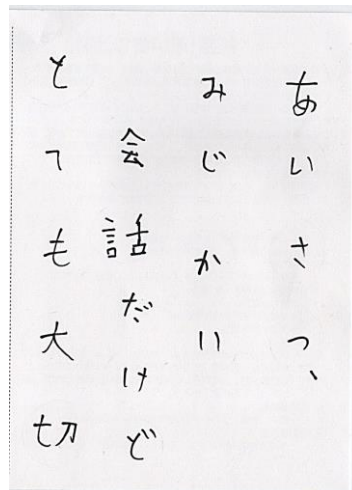 あいさつ、
みじかい
会話だけど
とても大切